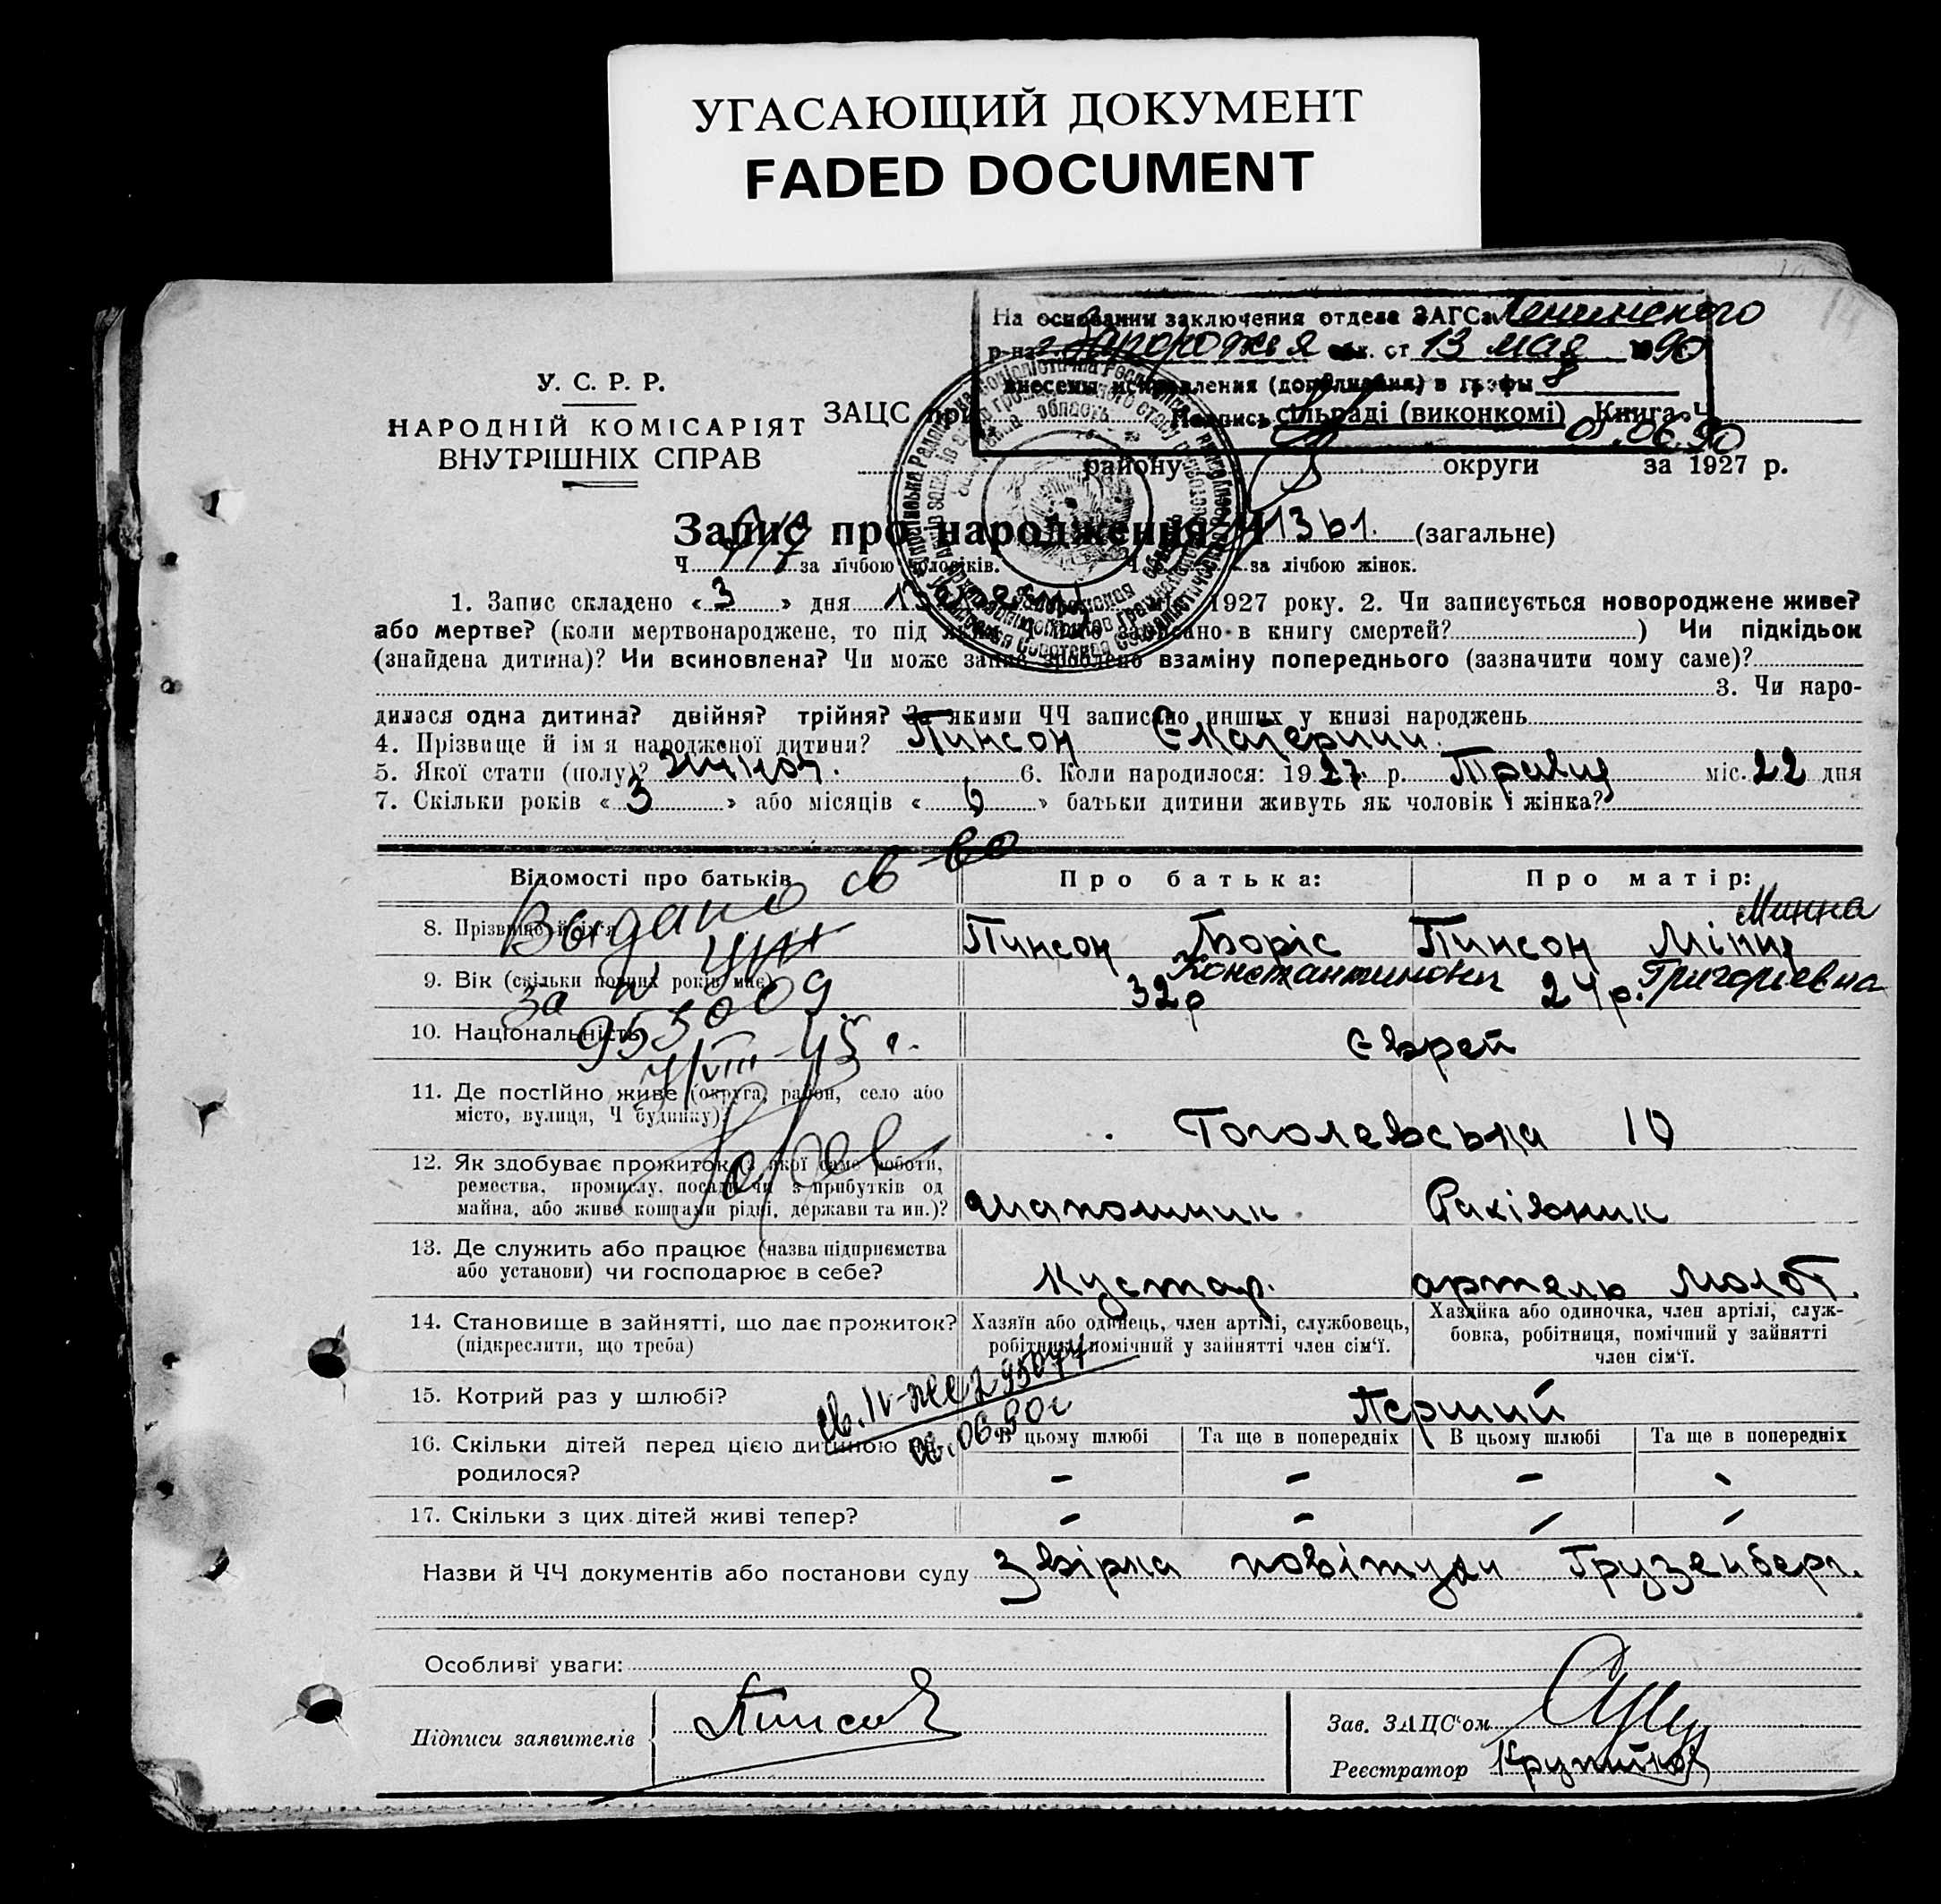 УГАСАЮЩИЙ ДОКУМЕНТ
FADED DOCUMENT
На основании заключения отдела ЗАГСа Ленинского
р-на г. Запорожья обл. от 13 мая 1990
внесены исправления (дополнения) в графы 8
Подпись
01.06.90
У. С. Р. Р.
НАРОДНІЙ КОМІСАРІЯТ
ВНУТРІШНІХ СПРАВ
ЗАЦС при сільраді (виконкомі) Книга Ч
району округи за 1927 р.
Запис про народження Ч 1361. (загальне)
Ч за лічбою чоловіків. Ч за лічбою жінок.
1. Запис складено « 3 » дня 1927 року. 2. Чи записується новороджене живе?
або мертве? (коли мертвонароджене, то під яким Ч його записано в книгу смертей? ) Чи підкідьок
(знайдена дитина)? Чи всиновлена? Чи може запис зроблено взаміну попереднього (зазначити чому саме)?
3. Чи наро-
дилася одна дитина? двійня? трійня? За якими ЧЧ записано инших у книзі народжень
4. Прізвище й ім я народженої дитини? Пинсон Екатерини.
5. Якої стати (полу)? жіноч. 6. Коли народилося: 1927 р. Травня міс. 22 дня
7. Скільки років « 3 » або місяців « » батьки дитини живуть як чоловік і жінка?
Відомості про батьків
Про батька:
Про матір:
Выдано св-во
за N
953009
VIII-45 г.
8. Прізвище й ім'я
Пинсон Боріс
Константинович
Пинсон Мінни
Минна
Григорьевна
9. Вік (скільки повних років має)
32 р
24 р.
10. Національність
Єврей
11. Де постійно живе (округа, район, село або
місто, вулиця, Ч будинку)?
Гоголевська 10
12. Як здобуває прожиток (з якої саме роботи,
ремества, промислу, посади чи з прибутків од
майна, або живе коштами рідні, держави та ин.)?
13. Де служить або працює (назва підприємства
або установи) чи господарює в себе?
Кустар.
артель Молот.
14. Становище в зайнятті, що дає прожиток?
(підкреслити, що треба)
Хазяїн або одинець, член артілі, службовець,
робітник, помічний у зайнятті член сім'ї.
Хазяйка або одиночка, член артілі, служ-
бовка, робітниця, помічний у зайнятті
член сім'ї.
15. Котрий раз у шлюбі?
Перший
16. Скільки дітей перед цією дитиною на-
родилося?
В цьому шлюбі
Та ще в попередніх
В цьому шлюбі
Та ще в попередніх
- - - -
17. Скільки з цих дітей живі тепер?
- - - -
Назви й ЧЧ документів або постанови суду звірка повітухи Грузенберг.
Особливі уваги:
Підписи заявителів
Пинсон
Зав. ЗАЦС'ом
Реєстратор